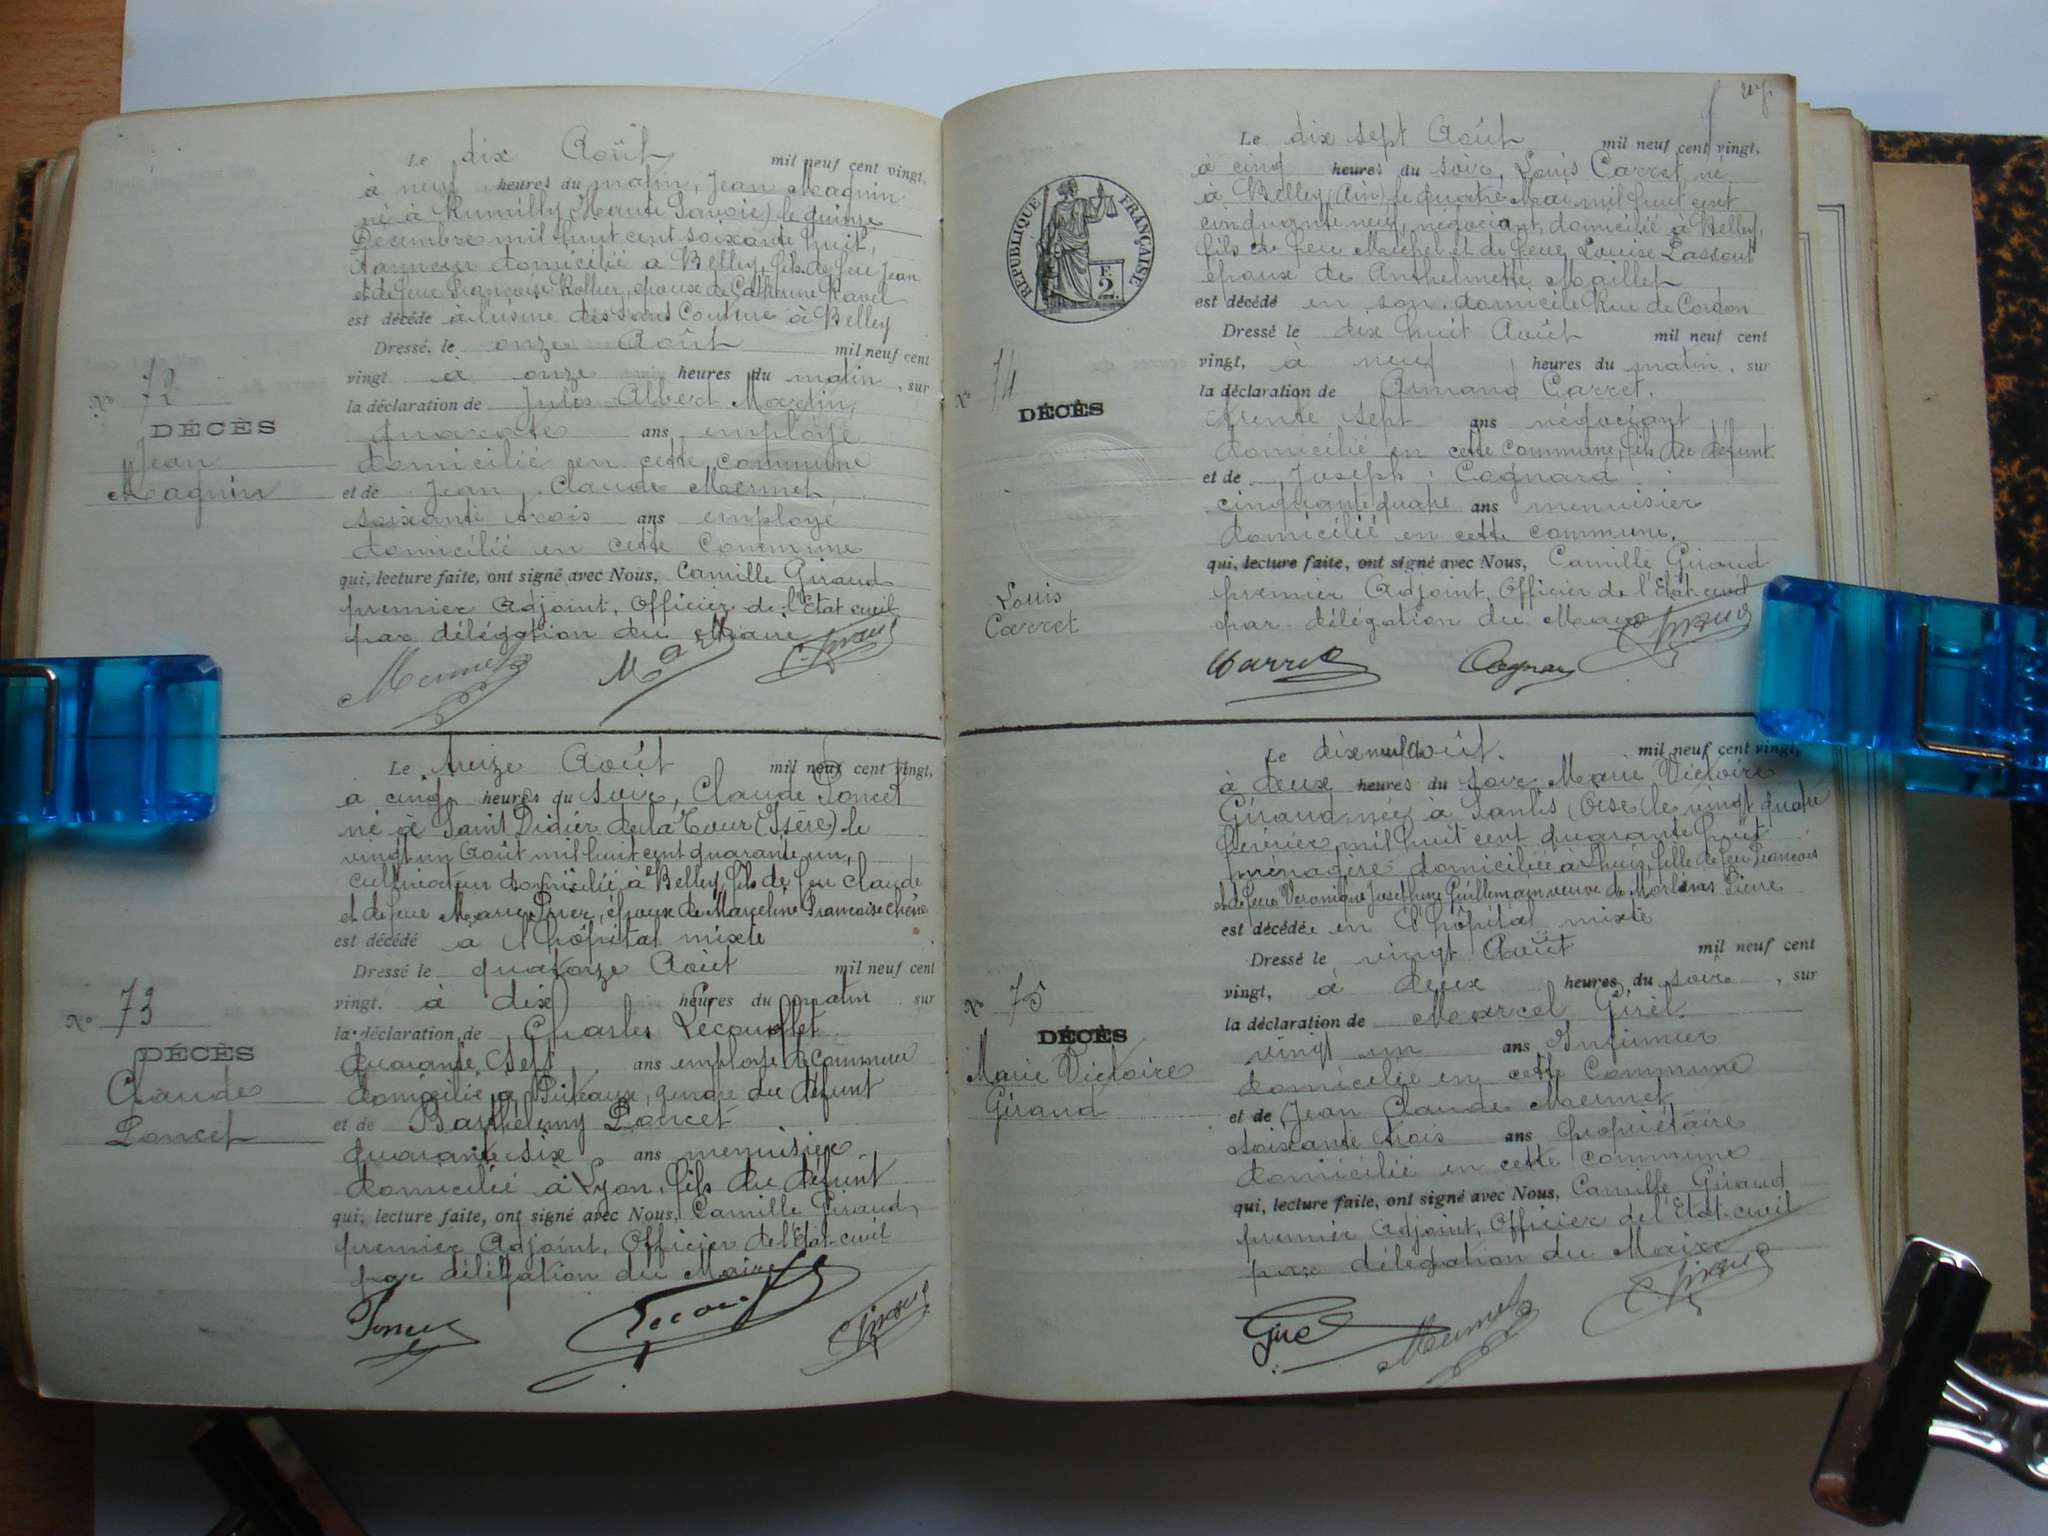 Le dix Août mil neuf cent vingt,
à neuf heures du matin, Jean Magnin
né à Rumilly (Haute Savoie) le quinze
Décembre mil huit cent soixante huit,
tanneur domicilié à Belley, fils de feu Jean
et de feue Françoise Rollier, époux de Catherine Ravel
est décédé à l'usine dessous Couture à Belley
Dressé, le onze Août mil neuf cent
vingt à onze heures du matin, sur
la déclaration de Jules Albert Martin,
quarante ans employé
domicilié en cette commune
et de Jean Claude Mermet,
soixante trois ans employé
domicilié en cette Commune
qui, lecture faite, ont signé avec Nous, Camille Giraud
premier Adjoint, Officier de l'Etat-civil
par délégation du Maire
Mermet C. Giraud
No 72
DÉCÈS
Jean
Magnin
Le treize Août mil neuf cent vingt,
à cinq heures du soir, Claude Poncet
né à Saint Didier de la Tour (Isère) le
vingt un Août mil huit cent quarante un,
cultivateur domicilié à Belley, fils de feu Claude
et de feue Marie époux de Marceline Françoise Chêne
est décédé à l'hôpital mixte
Dressé le quatorze Août mil neuf cent
vingt. à dix heures du matin sur
la déclaration de Charles Lecouflet
quarante sept ans employé de commerce
domicilié à Puteaux, gendre du défunt
et de Barthélemy Poncet
quarante six ans menuisier
domicilié à Lyon, fils du défunt
qui, lecture faite, ont signé avec Nous, Camille Giraud,
premier Adjoint, Officier de l'Etat-civil
par délégation du Maire
Poncet C. Giraud
No 73
DÉCÈS
Claude
Poncet
RÉPUBLIQUE FRANÇAISE
F.
2.
Le dix sept Août mil neuf cent vingt,
à cinq heures du soir, Louis Carret, né
à Belley (Ain) le quatre Mai mil huit cent
cinquante neuf, négociant, domicilié à Belley,
fils de feu Michel et de feue Louise Lassout
époux de Anthelmette Maillet
est décédé en son domicile Rue de Cordon
Dressé le dix huit Août mil neuf cent
vingt, à neuf heures du matin, sur
la déclaration de Armand Carret.
trente sept ans négociant
domicilié en cette commune, fils du défunt
et de Joseph Cognard
cinquante quatre ans menuisier
domicilié en cette commune.
qui, lecture faite, ont signé avec Nous, Camille Giraud
premier Adjoint, Officier de l'Etat-civil
par délégation du Maire C. Giraud
Carret Cognard
No 74
DÉCÈS
Louis
Carret
Le dix neuf août. mil neuf cent vingt,
à deux heures du soir Marie Victoire
Giraud née à (Oise) le vingt quatre
février mil huit cent quarante huit
ménagère domiciliée à Lhuis, fille de feu François
et de feue Véronique Joséphine Guillemain veuve de Pierre
est décédée en l'hôpital mixte
Dressé le vingt Août mil neuf cent
vingt, à deux heures du soir, sur
la déclaration de Marcel Girel
vingt un ans Infirmier
domicilié en cette Commune
et de Jean Claude Mermet
soixante trois ans propriétaire
domicilié en cette commune
qui, lecture faite, ont signé avec Nous, Camille Giraud
premier Adjoint, Officier de l'Etat-civil
par délégation du Maire
Mermet C. Giraud
No 75
DÉCÈS
Marie Victoire
Giraud